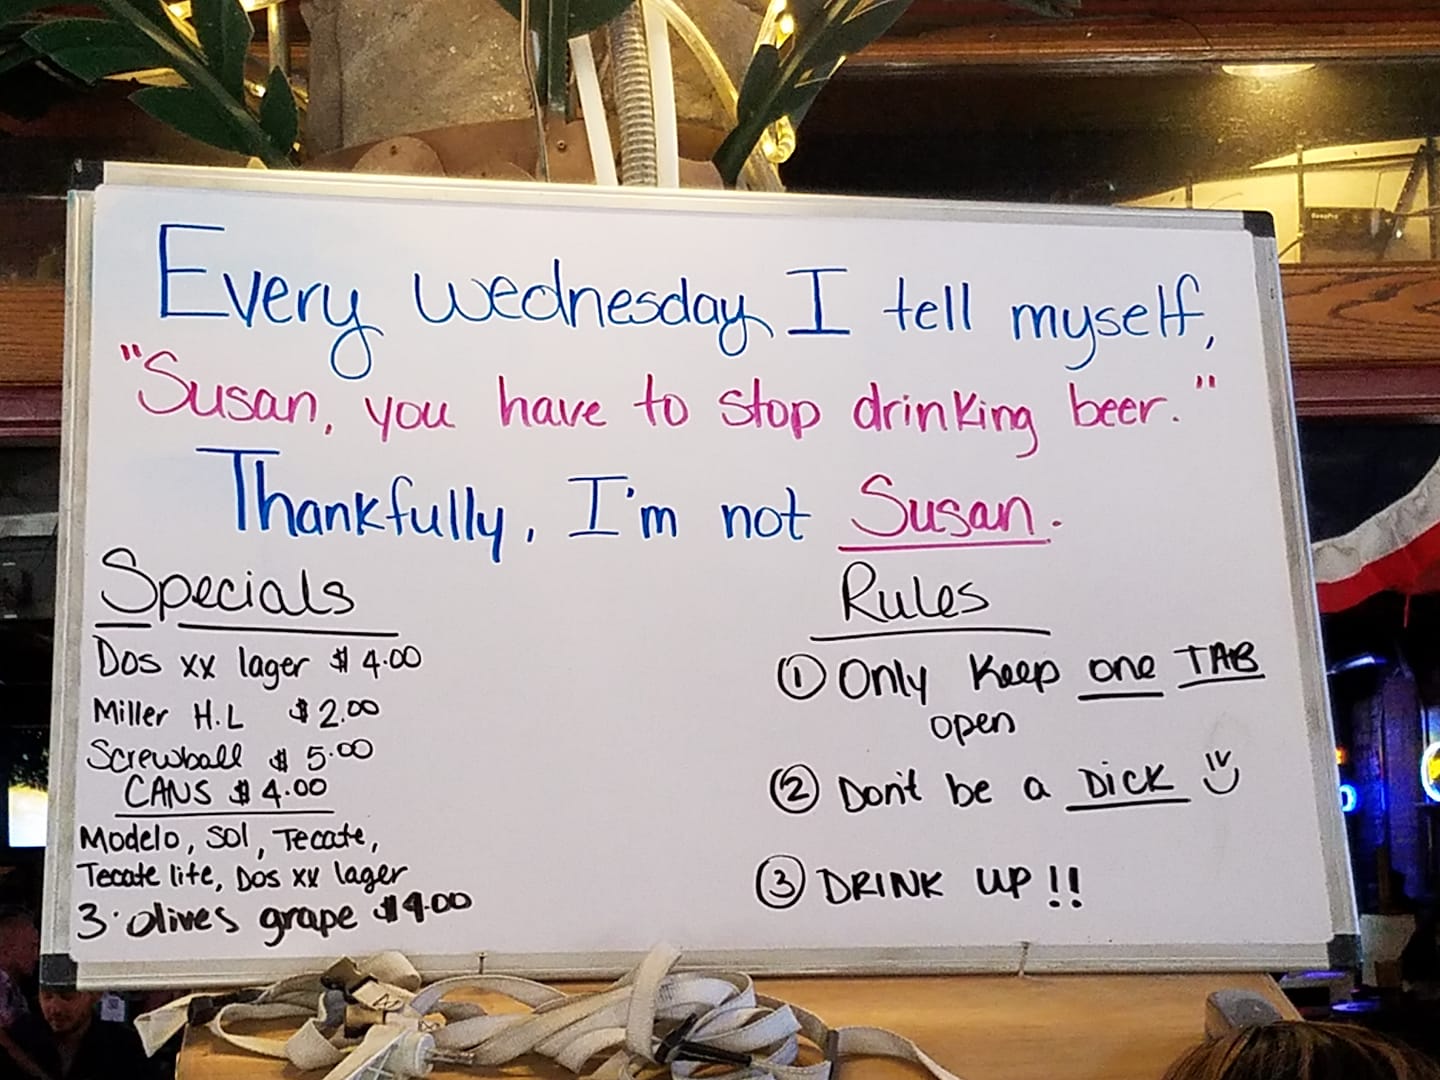 Every Wednesday I tell myself,
"Susan, you have to stop drinking beer."
Thankfully, I'm not Susan.
Specials
Dos xx lager $4.00
Miller H.L $2.00
Screwball $5.00
CANS $4.00
Modelo, Sol, Tecate,
Tecate lite, Dos xx lager
3 olives grape $4.00
Rules
① Only Keep one TAB
open
② Don't be a DICK
③ DRINK UP!!